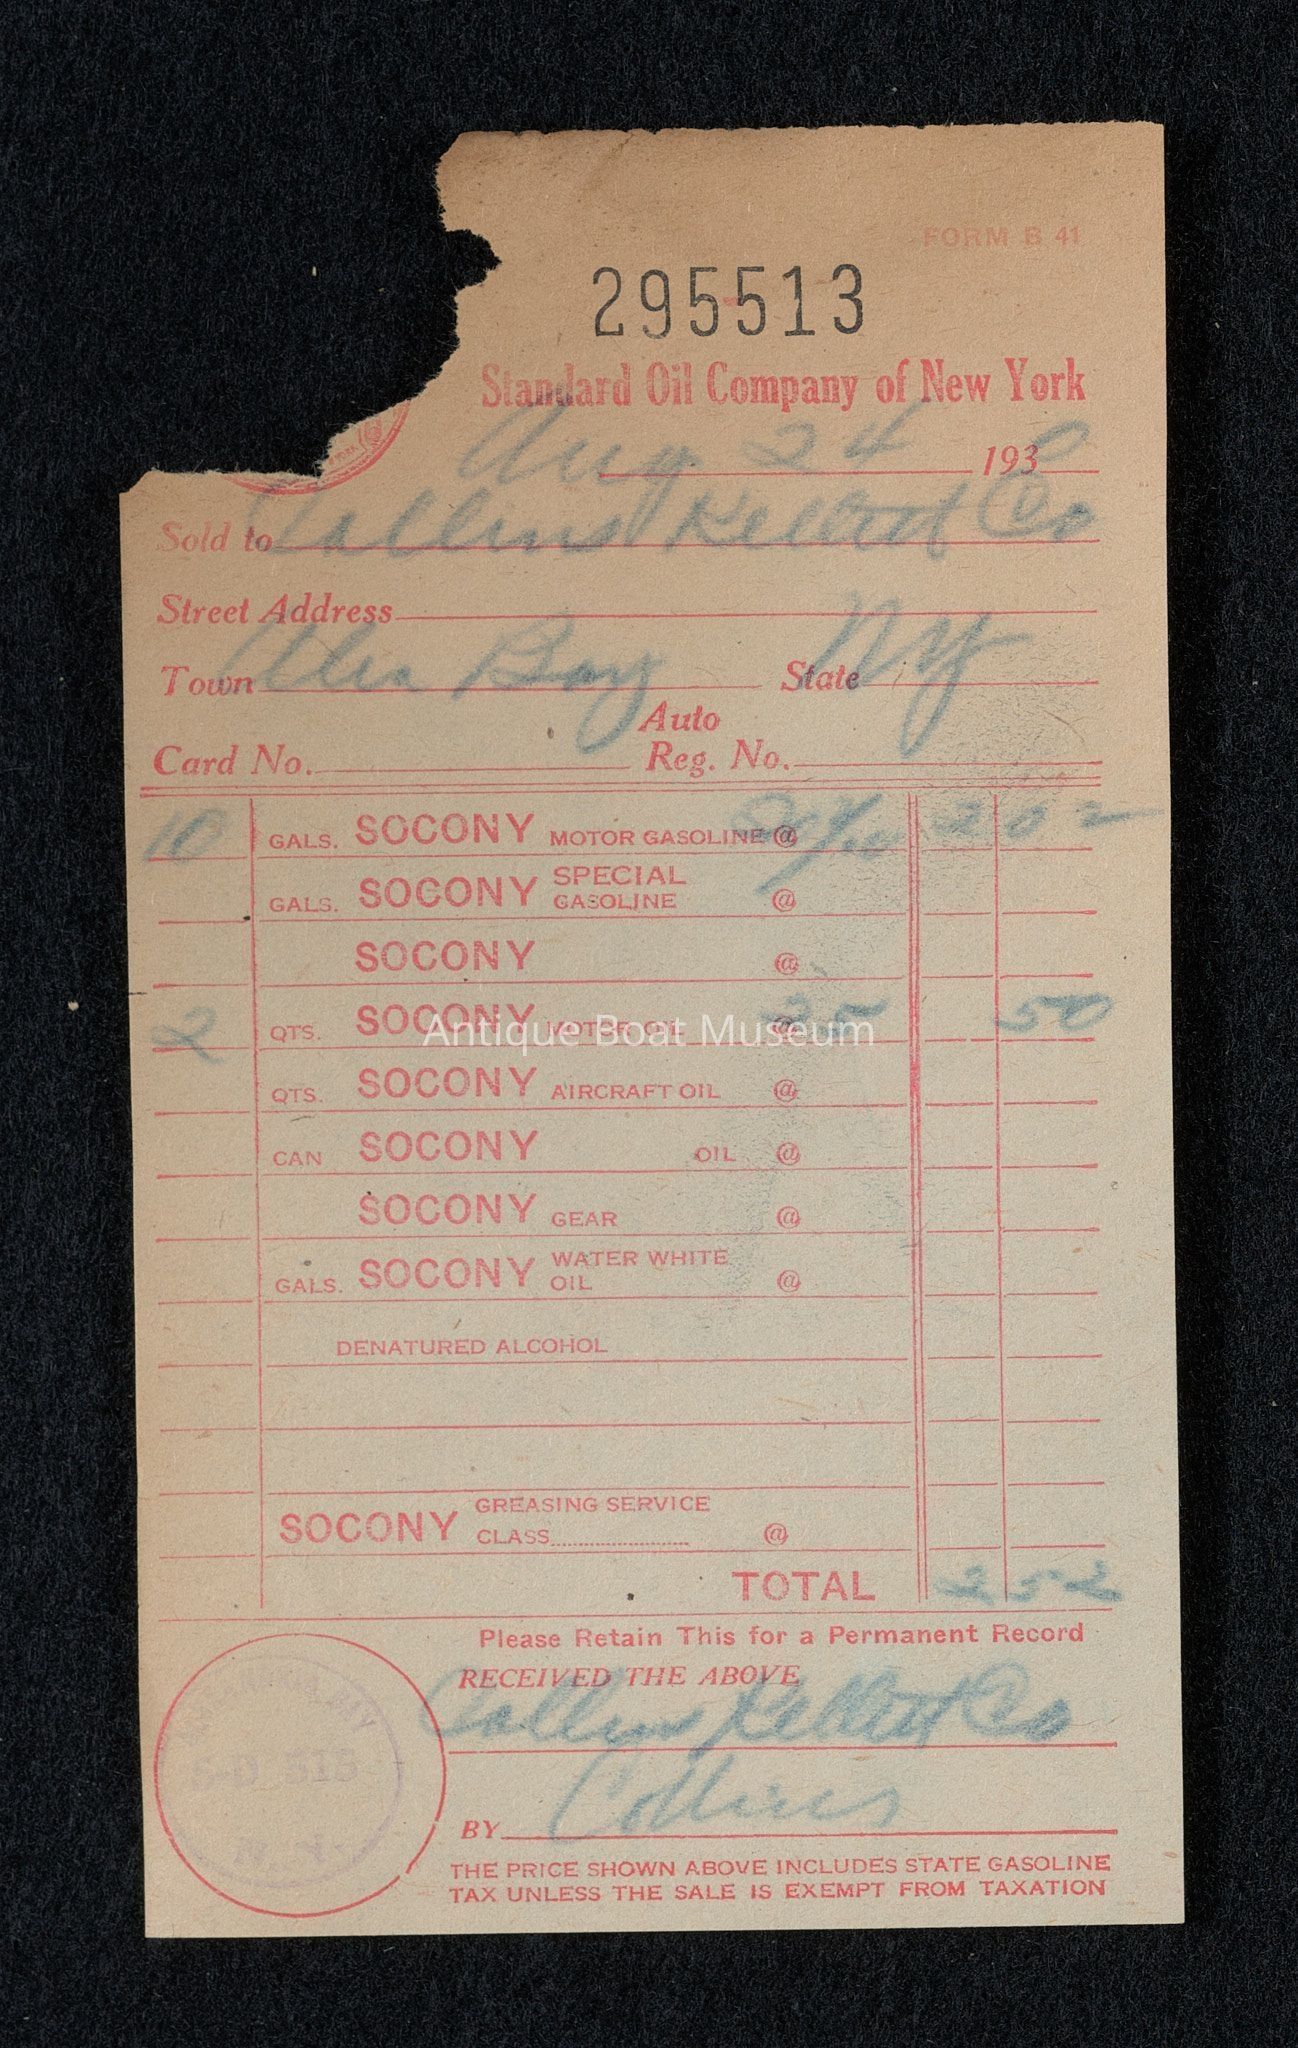 FORM B 41
295513
Standard Oil Company of New York
Aug 24 1930
Sold to Collins Kellott Co
Street Address
Town Alex Bay State NY
Auto
Card No. Reg. No.
10 GALS. SOCONY MOTOR GASOLINE @ 2 02
GALS. SOCONY SPECIAL GASOLINE @
SOCONY @
2 QTS. SOCONY MOTOR OIL @ 25 50
Antique Boat Museum
QTS. SOCONY AIRCRAFT OIL @
CAN SOCONY OIL @
SOCONY GEAR @
GALS. SOCONY WATER WHITE OIL @
DENATURED ALCOHOL
SOCONY GREASING SERVICE
CLASS @
TOTAL 2 52
Please Retain This for a Permanent Record
RECEIVED THE ABOVE
Collins Kellott Co
BY Collins
S-D 515
N.Y.
THE PRICE SHOWN ABOVE INCLUDES STATE GASOLINE
TAX UNLESS THE SALE IS EXEMPT FROM TAXATION